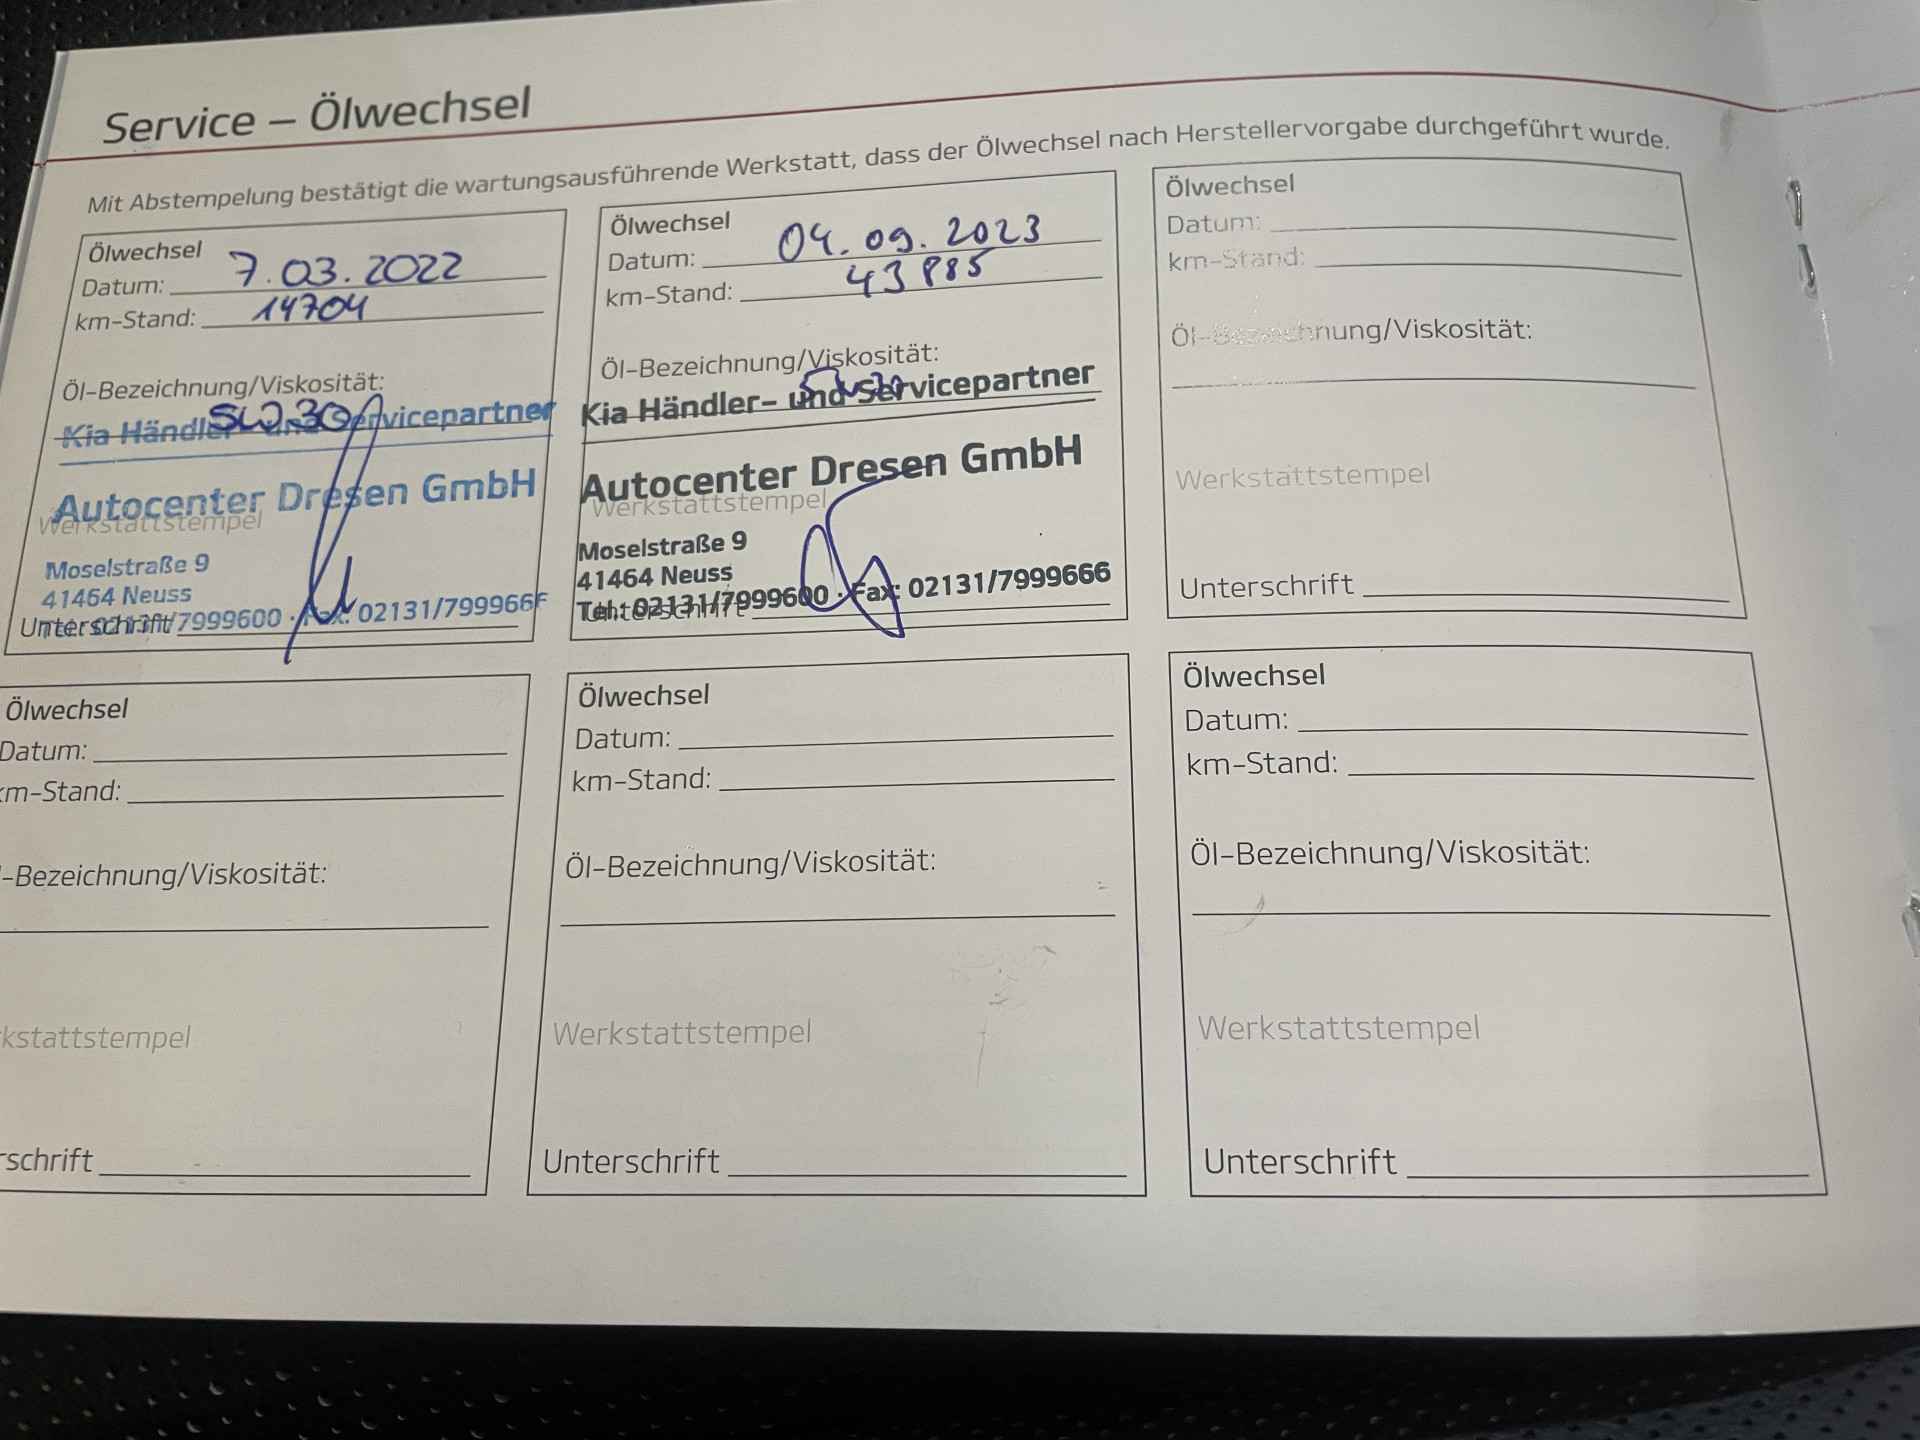 Service – Ölwechsel
Mit Abstempelung bestätigt die wartungsausführende Werkstatt, dass der Ölwechsel nach Herstellervorgabe durchgeführt wurde.
Ölwechsel
Datum: 7.03.2022
km-Stand: 14704
Öl-Bezeichnung/Viskosität:
5W30
Kia Händler- und Servicepartner
Autocenter Dresen GmbH
Werkstattstempel
Moselstraße 9
41464 Neuss
Tel.: 02131/7999600 · Fax: 02131/7999666
Unterschrift
Ölwechsel
Datum: 04.09.2023
km-Stand: 43885
Öl-Bezeichnung/Viskosität:
Kia Händler- und Servicepartner
Autocenter Dresen GmbH
Werkstattstempel
Moselstraße 9
41464 Neuss
Tel.: 02131/7999600 · Fax: 02131/7999666
Unterschrift
Ölwechsel
Datum:
km-Stand:
Öl-Bezeichnung/Viskosität:
Werkstattstempel
Unterschrift
Ölwechsel
Datum:
km-Stand:
-Bezeichnung/Viskosität:
kstattstempel
rschrift
Ölwechsel
Datum:
km-Stand:
Öl-Bezeichnung/Viskosität:
Werkstattstempel
Unterschrift
Ölwechsel
Datum:
km-Stand:
Öl-Bezeichnung/Viskosität:
Werkstattstempel
Unterschrift